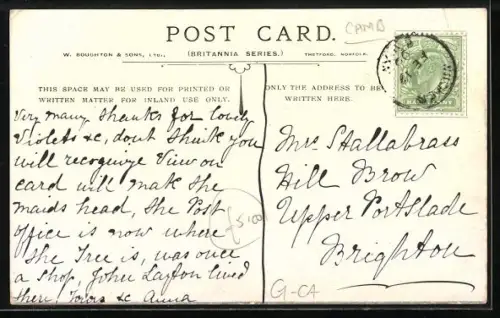 POST CARD.
CAMB
W. BOUGHTON & SONS, LTD., (BRITANNIA SERIES.) THETFORD, NORFOLK.
THIS SPACE MAY BE USED FOR PRINTED OR
WRITTEN MATTER FOR INLAND USE ONLY.
ONLY THE ADDRESS TO BE
WRITTEN HERE.
Very many thanks for lovely
Violets &c, dont think you
will recognize View on
card will mak the
maids head, the Post
office is now where
the Tree is, was once
a shop, John Layton lived
there, Yours &c Anna
Mrs Stallabrass
Hill Brow
Upper Portslade
Brighton
G-CA